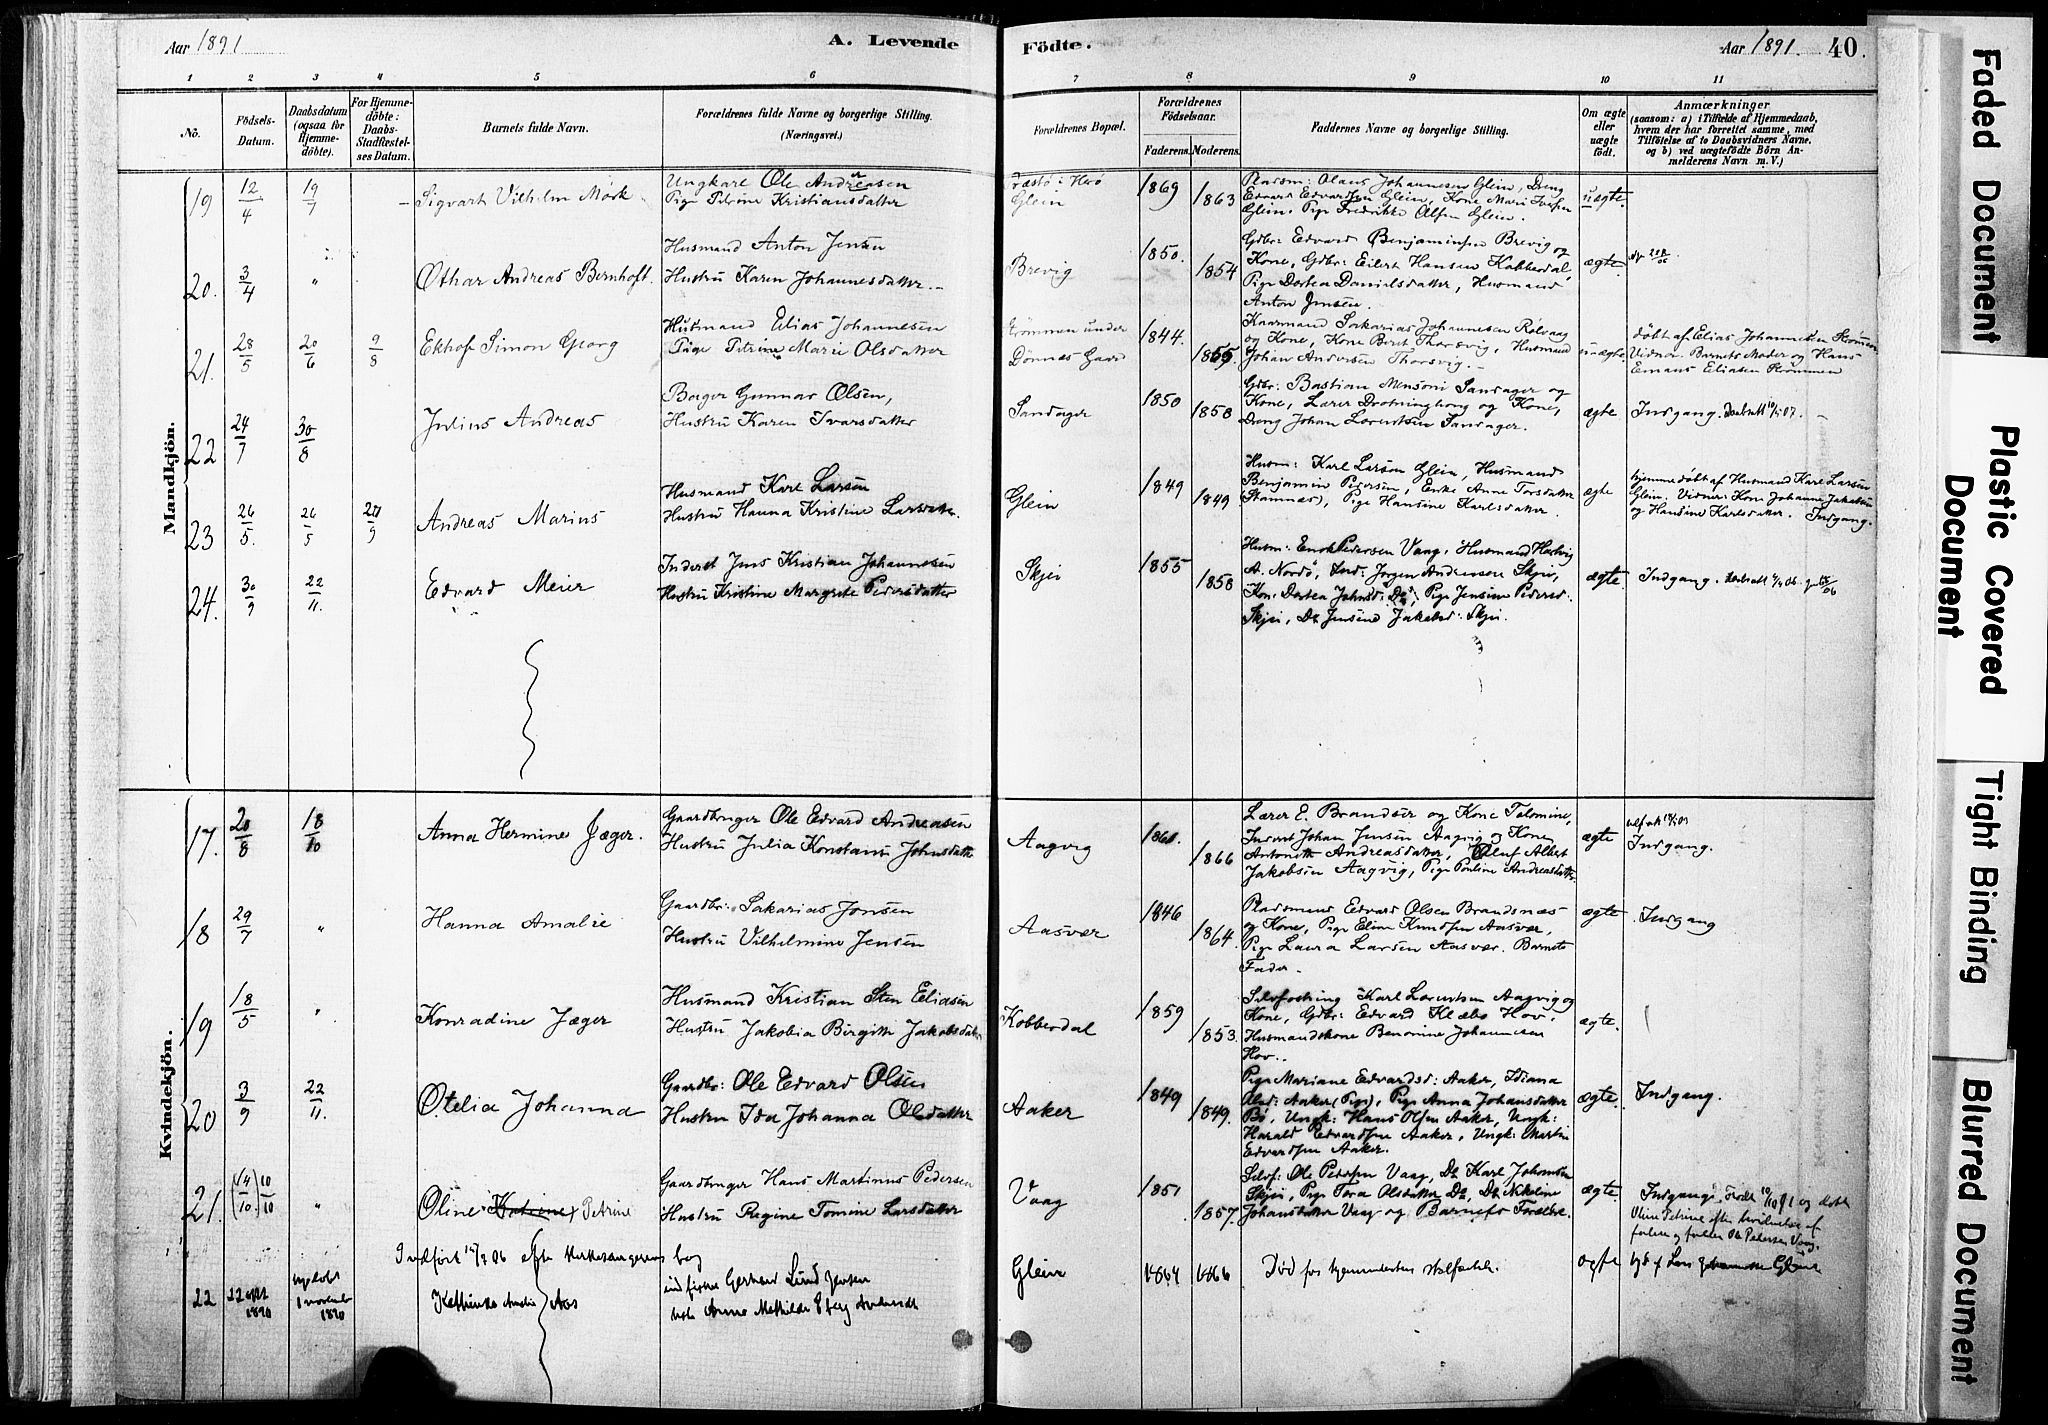 Aar 1891
A. Levende
Födte.
Aar 1891. 40.
1 2 3 4 5 6 7 8 9 10 11
No.
Födsels-Datum.
Daabsdatum (ogsaa for Hjemmedöbte).
For Hjemmedöbte: Daabs-Stadfæstelses Datum.
Barnets fulde Navn.
Forældrenes fulde Navne og borgerlige Stilling. (Næringsvei.)
Forældrenes Bopæl.
Forældrenes Födselsaar.
Faderens. Moderens.
Faddernes Navne og borgerlige Stilling.
Om ægte eller uægte födt.
Anmærkninger
(saasom: a) i Tilfælde af Hjemmedaab, hvem der har forrettet samme, med Tilföielse af to Daabsvidners Navne, og b) ved uægtefödte Börn Anmelderens Navn m. V.)
Mandkjön.
19 12/4 19/7 Sigvart Vilhelm Mörk
Ungkarl Ole Andreasen
Pige Petrine Kristiansdatter
Glein
1869 1863
Pladsm: Olaus Johannesen Glein, Dreng
Edvard Edvardsen Glein, Kone Mari Ivesen
Glein. Pige Fredrikke Olsen Glein.
uægte.
20. 3/4 " Othar Andreas Bernhoft.
Husmand Anton Jensen
Hustru Karen Johannesdatter.
Brevig
1850. 1854
Gdbr: Edvard Benjaminsen Brevig og
Kone, Gdbr: Eilert Hansen Kobberdal,
Pige Dortea Danielsdatter, Husmand
Anton Jensen.
ægte.
21. 28/5 20/6 9/8 Ekhof Simon Georg
Husmand Elias Johannesen
Pige Petrine Marie Olsdatter
Strömmen under
Dönnes Gaard
1844. 1855.
Kaarmand Sakarias Johannesen Rölvaag
og Kone, Kone Berit Thorsvig, Husmand
Johan Andersen Thorsvig.
uægte.
döbt af Elias Johannesen Strömmen
Vidner Barnets Moder og Hans
Emans Eliasen Strömmen
22 24/7 30/8 Julius Andreas
Bager Gunnar Olsen,
Hustru Karen Ivarsdatter
Sandager
1850 1858
Gdbr: Bastian Sandager og
Kone, Lærer Drotninghong og Kone,
Dreng Johan Lorentsen Sandager.
ægte
Indgang.
23 26/5. 26/5 20/9 Andreas Marius
Husmand Karl Larsen
Hustru Hanna Kristine Larsdatter.
Glein
1849 1849
Husm: Karl Larsen Glein, Husmand
Benjamin Pedersen, Enke Anne Torsdatter
Stamnes), Pige Hansine Karlsdatter.
ægte
hjemmedöbt af Husmand Karl Larsen
Glein. Vidner: Kone Johanne Jakobsen
og Hansine Karlsdatter. Indgang.
24. 30/9 22/11. Edvard Meier
Inderst Jens Kristian Johannesen
Hustru Kristine Margrete Pedersdatter
Skjei
1855 1858
Husm: Enok Pedersen Vaag, Husmand Hartvig
A. Nordö, Ind: Jörgen Andreassen Skjei,
Kon: Dortea Johnsd: Do, Pige Jensine Pedersd:
Skjei, Do Jensine Jakobsd: Skjei.
ægte.
Indgang.
Kvindekjön.
17. 20/8 18/10 Anna Hermine Jæger.
Gaardbruger Ole Edvard Andreasen
Hustru Julia Konstanse Johnsdatter
Aagvig
1861. 1866
Lærer E. Brandser og Kone Tolomine,
Inderst Johan Jensen Aagvig og Kone
Antonette Andreasdatter, Oluf Albert
Jakobsen Aagvig, Pige Pauline Andreasdatter
ægte
Indgang.
18 29/7 " Hanna Amalie
Gaardbr: Sakarias Jensen
Hustru Vilhelmine Jensen
Aasvær
1846 1864.
Pladsmand Edvard Olsen Brandsnæs
og Kone, Pige Eline Knudsen Aasvær,
Pige Laura Larsen Aasvær. Barnets
Fader.
ægte
Indgang
19 18/5 " Konradine Jæger
Husmand Kristian Sten Eliasen
Hustru Jakobia Birgitte Jakobsdatter
Kobberdal
1859 1853.
Selvfostring Karl Lorentsen Aagvig og
Kone, Gdbr: Edvard Klæbo Hov.
Husmandskone Benonine Johannesen
Hov.
ægte.
20 3/9 22/11. Otelia Johanna
Gaardbr: Ole Edvard Olsen
Hustru Ida Johanna Olsdatter
Aaker
1849 1849.
Pige Mariane Edvardsd: Aaker, Idiana
Olsd: Aaker (Pige), Pige Anna Johansdatter
Bö, Ungk: Hans Olsen Aaker, Ungk:
Harald Edvardsen Aaker, Ungk: Martin
Edvardsen Aaker.
ægte.
Indgang.
21. (14/10.) 10/10 " Oline Katrine Petrine
Gaardbruger Hans Martinus Pedersen
Hustru Regine Tomine Larsdatter
Vaag
1851 1857.
Selvf: Ole Pedersen Vaag, Do Karl Johansen
Skjei, Pige Tora Olsdatter Do, Do Nikoline
Johansdatter Vaag og Barnets Forældre.
ægte
Indgang. Födt 10/10 91 og döbt
Oline Petrine efter bevidnelse af
Ole Pedersen Vaag.
Indfört 14/7 06 efter kirkesangerens bog
22 22 sept 1890 1 november 1890
Gerhard Lund Jensen
Anne Mathilde
Glein
1864 1866
Död for
ægte
Faded Document
Plastic Covered Document
Tight Binding
Blurred Document